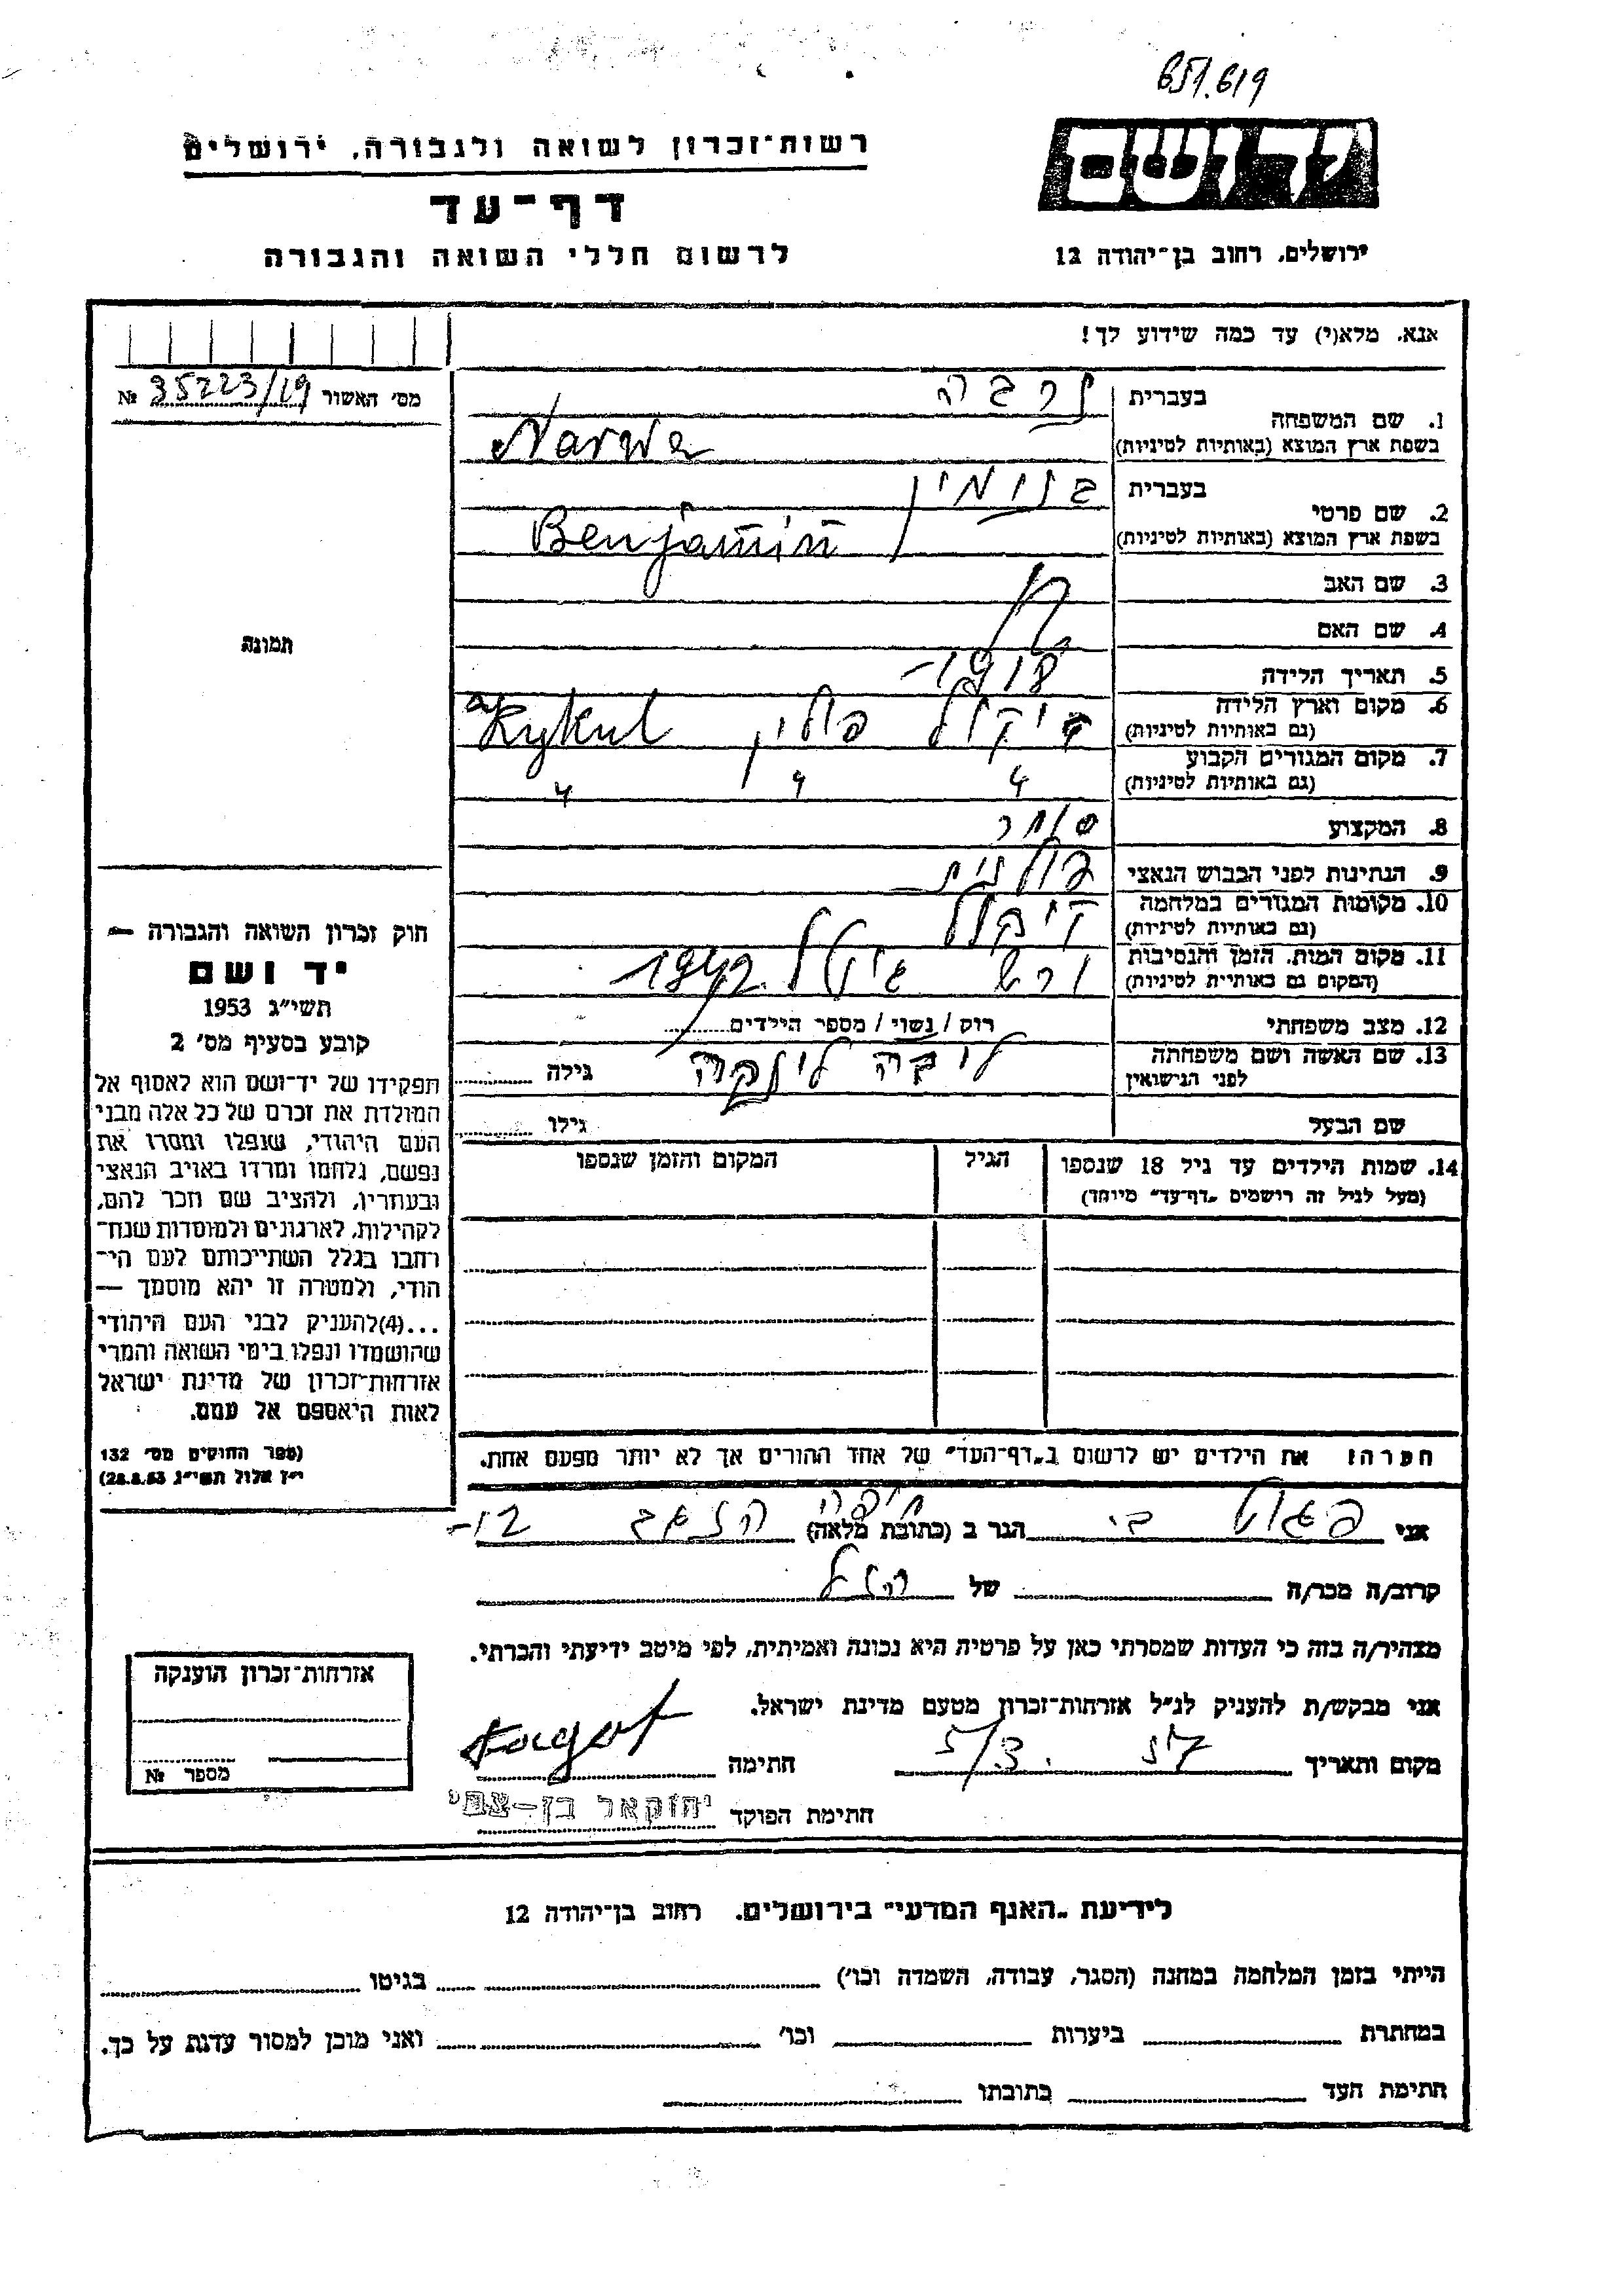 651.619
יד ושם
רשות־זכרון לשואה ולגבורה, ירושלים
דף־עד
לרשום חללי השואה והגבורה
ירושלים, רחוב בן־יהודה 12
אנא, מלא(י) עד כמה שידוע לך!
מס׳ האשור 35223/19 №
1. שם המשפחה
בעברית נרבה
בשפת ארץ המוצא (באותיות לטיניות) Narwa
2. שם פרטי
בעברית בנימין
בשפת ארץ המוצא (באותיות לטיניות) Benjamin
3. שם האב
4. שם האם
תמונה
5. תאריך הלידה 1918-
6. מקום וארץ הלידה
(גם באותיות לטיניות) פולין Kykul
7. מקום המגורים הקבוע
(גם באותיות לטיניות) 4 4 4
8. המקצוע סוחר
9. הנתינות לפני הכבוש הנאצי פולנית
10. מקומות המגורים במלחמה
(גם באותיות לטיניות)
11. מקום המות, הזמן והנסיבות
(המקום גם באותיות לטיניות) 1942
12. מצב משפחתי רוק / נשוי / מספר הילדים
13. שם האשה ושם משפחתה
לפני הנישואין ליבה גילה
שם הבעל גילו
14. שמות הילדים עד גיל 18 שנספו הגיל המקום והזמן שנספו
(מעל לגיל זה רושמים „דף־עד״ מיוחד)
חוק זכרון השואה והגבורה —
יד ושם
תשי״ג 1953
קובע בסעיף מס׳ 2
תפקידו של יד־ושם הוא לאסוף אל
המולדת את זכרם של כל אלה מבני
העם היהודי, שנפלו ומסרו את
נפשם, נלחמו ומרדו באויב הנאצי
ובעוזריו, ולהציב שם וזכר להם,
לקהילות, לארגונים ולמוסדות שנח־
רבו בגלל השתייכותם לעם הי־
הודי, ולמטרה זו יהא מוסמך —
...(4)להעניק לבני העם היהודי
שהושמדו ונפלו בימי השואה והמרי
אזרחות־זכרון של מדינת ישראל
לאות היאספם אל עמם.
(ספר החוקים מס׳ 132
י״ז אלול תשי״ג 28.8.53)
הערה: את הילדים יש לרשום ב„דף־העד״ של אחד ההורים אך לא יותר מפעם אחת.
אני פגוט בי. הגר ב (כתובת מלאה) חיפה 12-
קרוב/ה מכר/ה של הנ״ל
מצהיר/ה בזה כי העדות שמסרתי כאן על פרטיה היא נכונה ואמיתית, לפי מיטב ידיעתי והכרתי.
אני מבקש/ת להעניק לנ״ל אזרחות־זכרון מטעם מדינת ישראל.
מקום ותאריך 5/3. 57 חתימה
חתימת הפוקד יחזקאל בן־צבי
אזרחות־זכרון הוענקה
מספר №
לידיעת „האגף המדעי״ בירושלים, רחוב בן־יהודה 12
הייתי בזמן המלחמה במחנה (הסגר, עבודה, השמדה וכו׳) בגיטו
במחתרת ביערות וכו׳ ואני מוכן למסור עדות על כך.
חתימת העד כתובתו